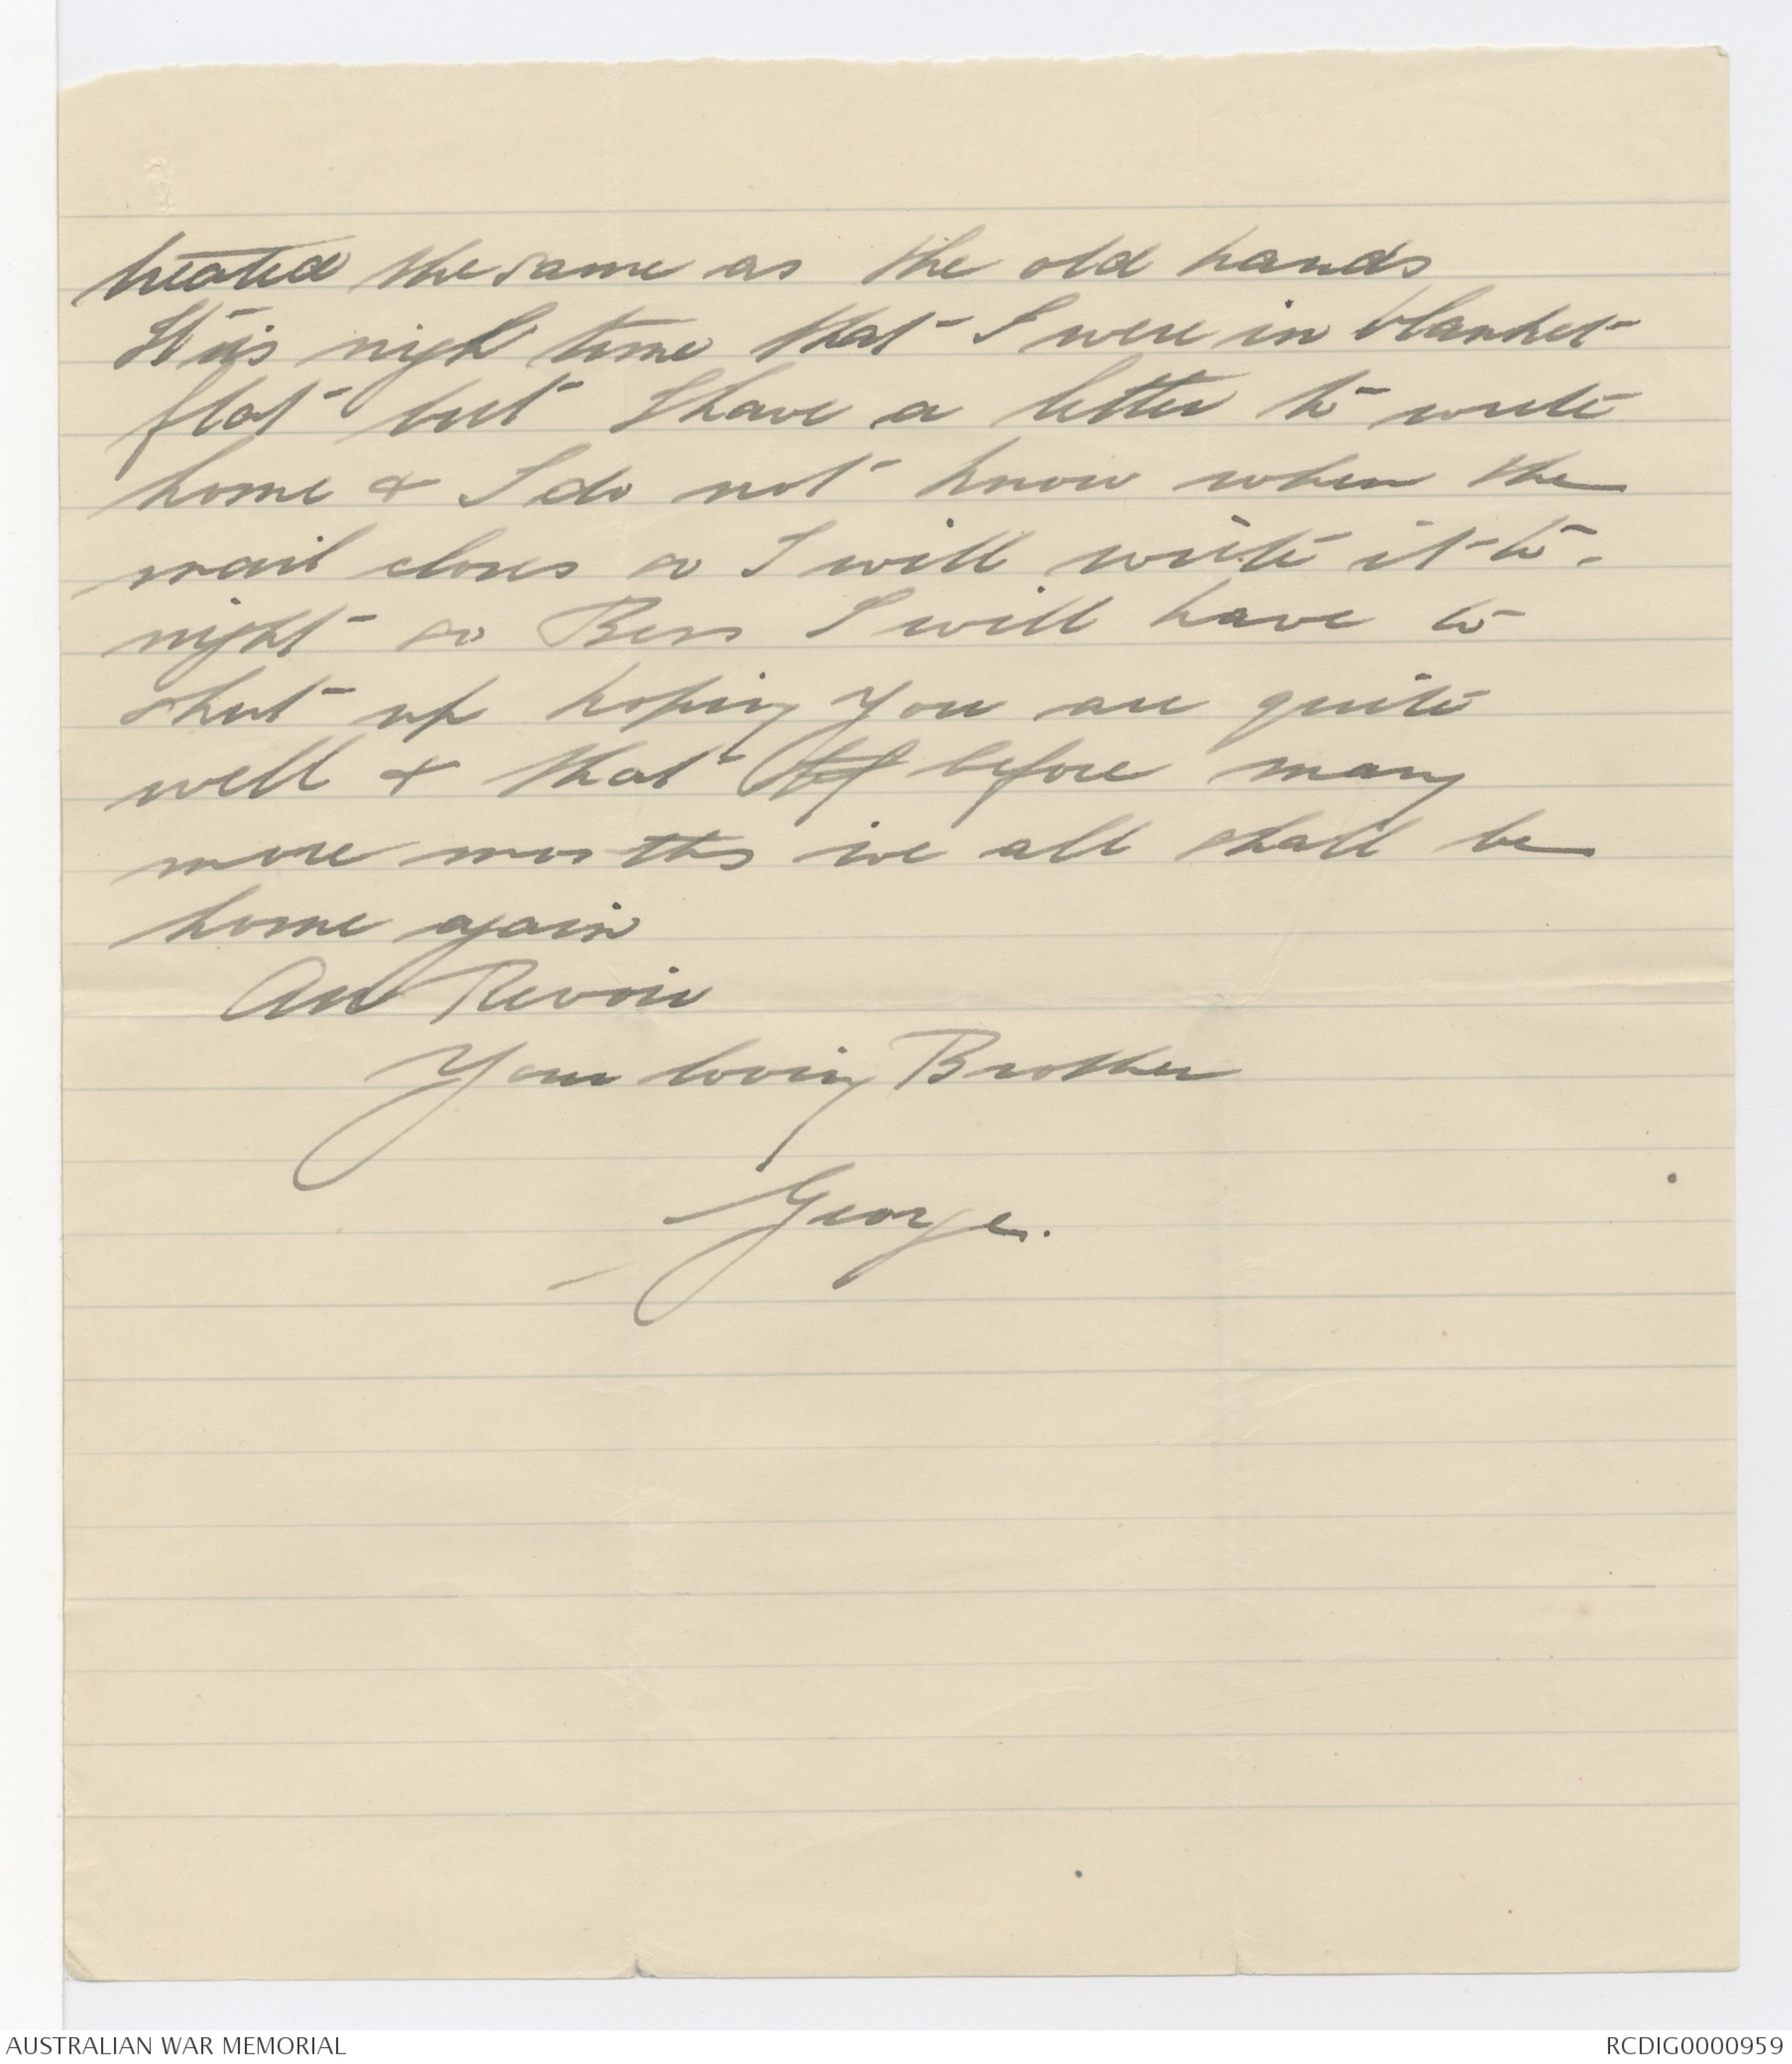 treated the same as the old hands
It is nigh time that I were in blanket
flat but I have a letter to write
home & I do not know when the
mail closes so I will write it to-
night so Bess I will have to
shut up hoping you are quite
well & that before many
more months we all shall be
home again
Au Revoir
Your loving Brother
George.
AUSTRALIAN WAR MEMORIAL
RCDIG0000959